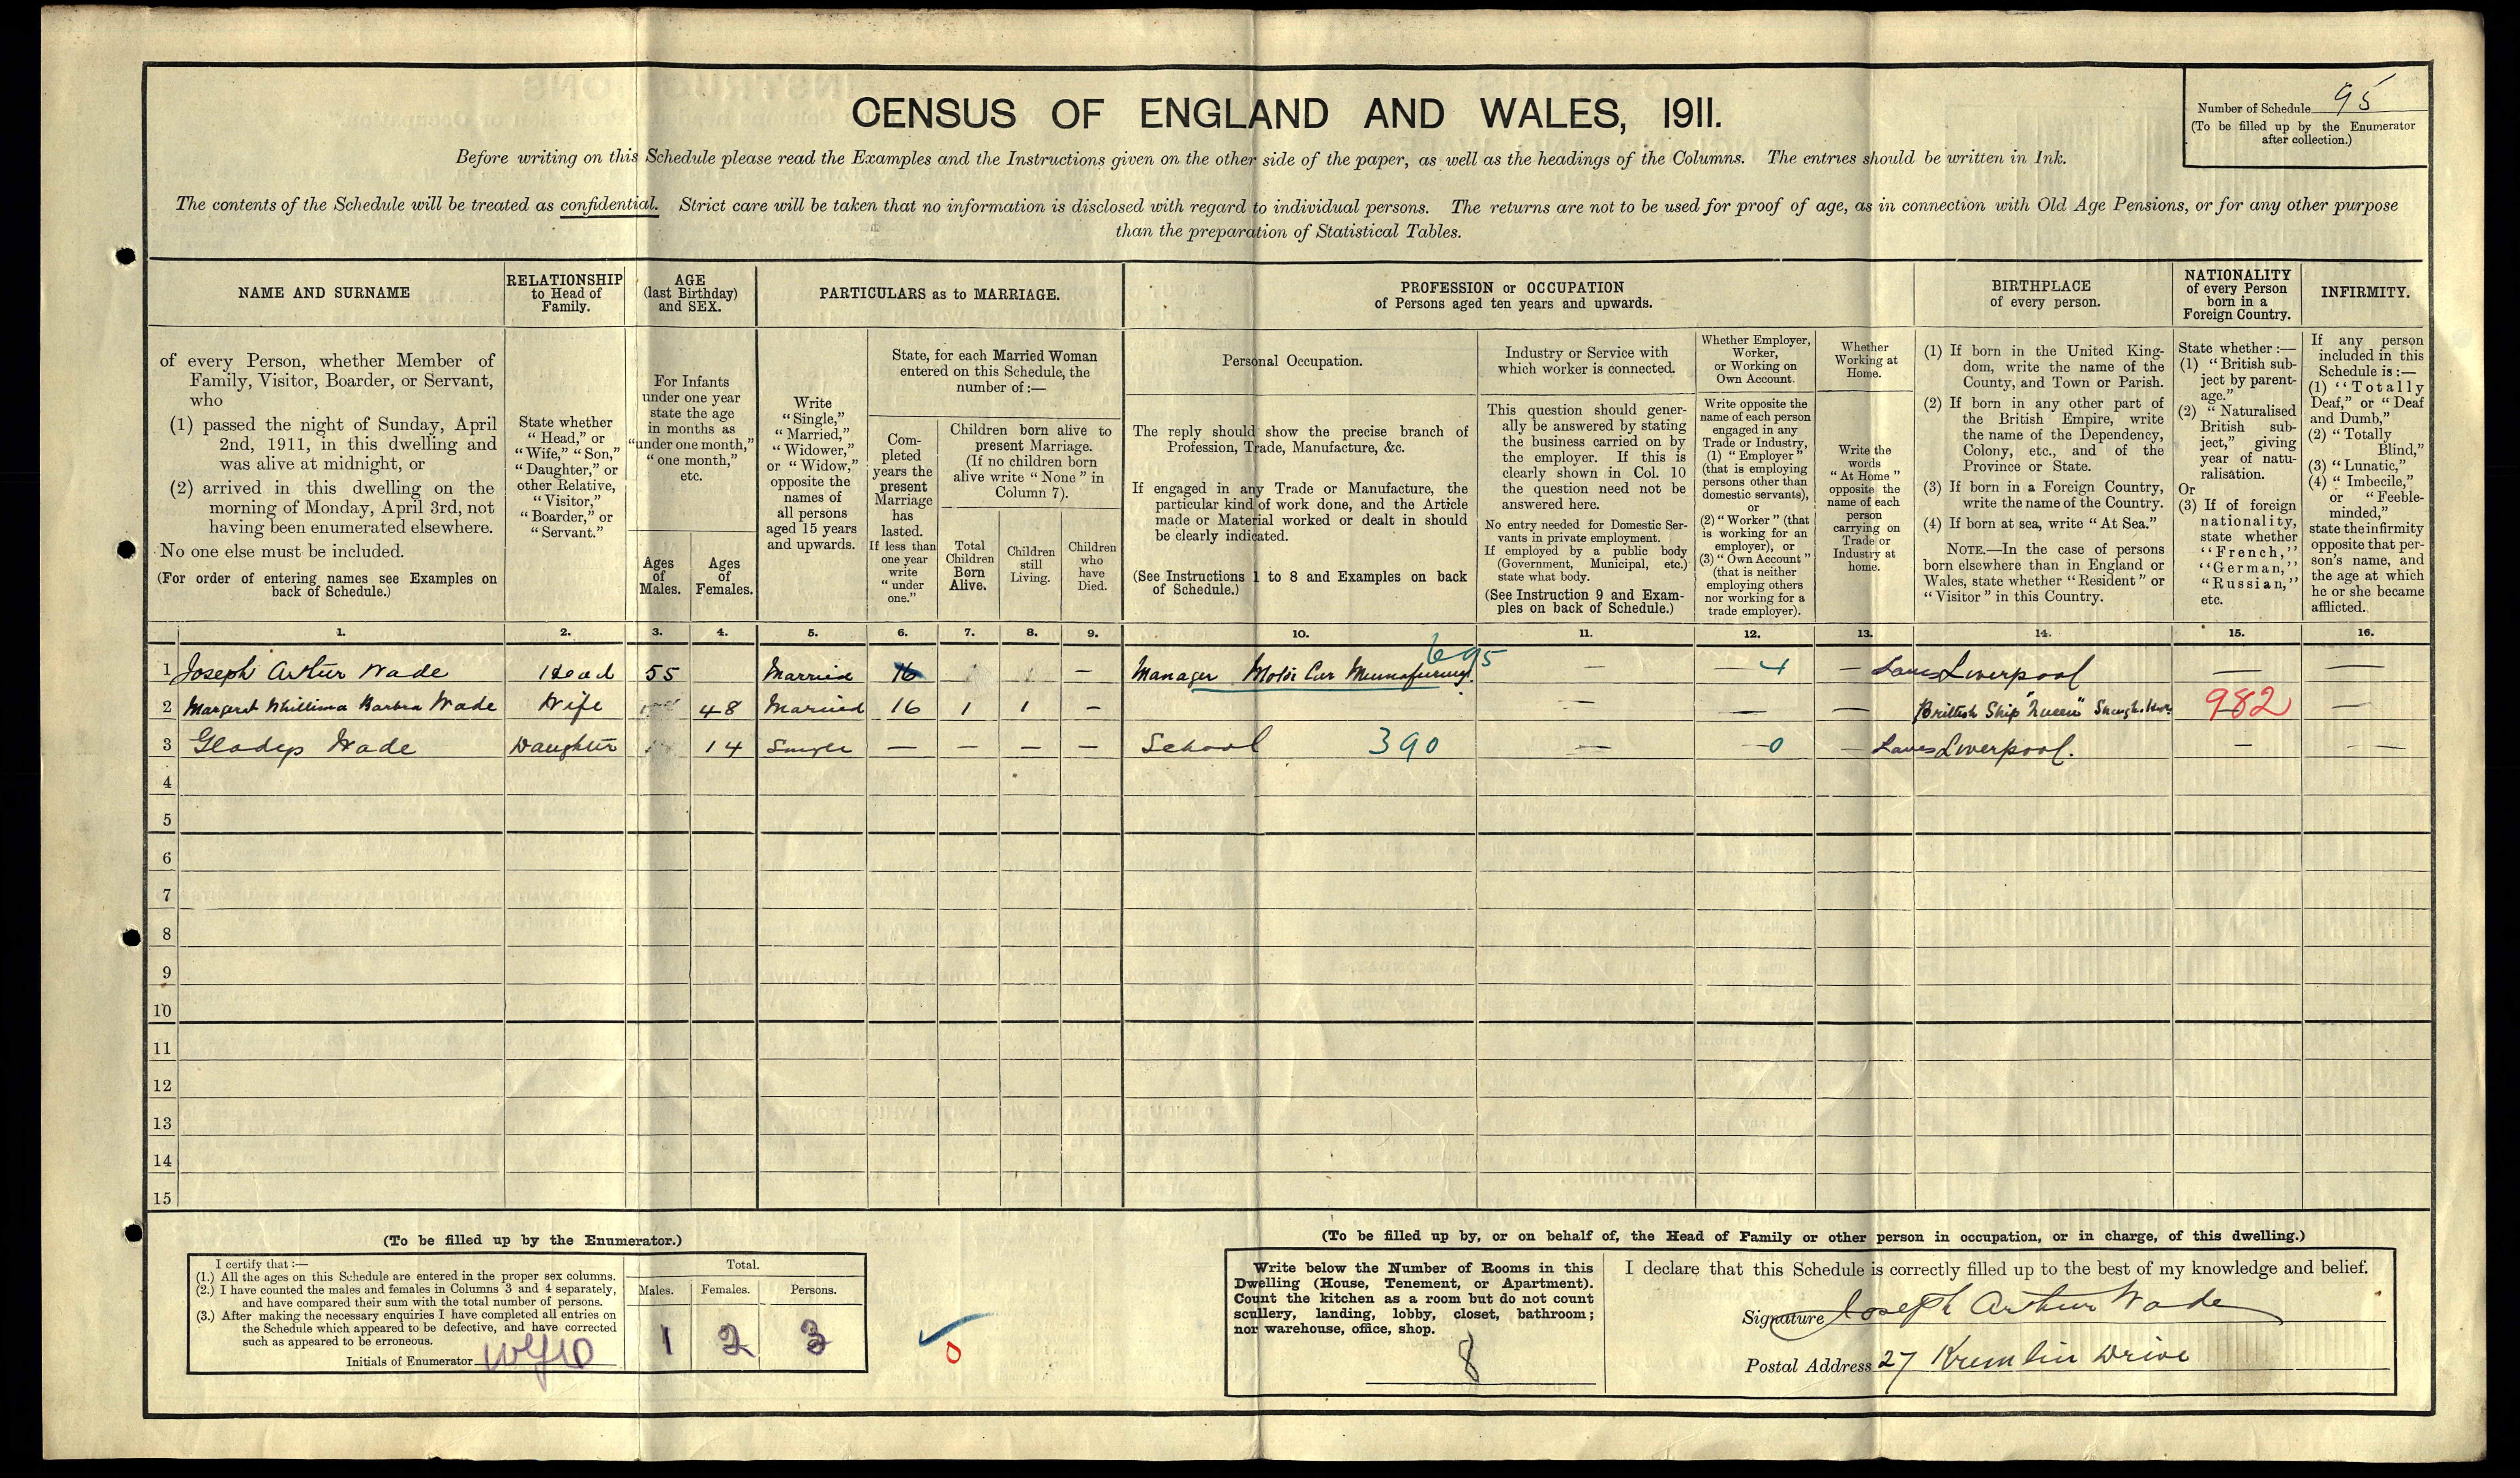 CENSUS OF ENGLAND AND WALES, 1911.
Number of Schedule 95
(To be filled up by the Enumerator
after collection.)
Before writing on this Schedule please read the Examples and the Instructions given on the other side of the paper, as well as the headings of the Columns. The entries should be written in Ink.
The contents of the Schedule will be treated as confidential. Strict care will be taken that no information is disclosed with regard to individual persons. The returns are not to be used for proof of age, as in connection with Old Age Pensions, or for any other purpose
than the preparation of Statistical Tables.
NAME AND SURNAME
of every Person, whether Member of
Family, Visitor, Boarder, or Servant,
who
(1) passed the night of Sunday, April
2nd, 1911, in this dwelling and
was alive at midnight, or
(2) arrived in this dwelling on the
morning of Monday, April 3rd, not
having been enumerated elsewhere.
No one else must be included.
(For order of entering names see Examples on
back of Schedule.)
RELATIONSHIP
to Head of
Family.
State whether
"Head," or
"Wife," "Son,"
"Daughter," or
other Relative,
"Visitor,"
"Boarder," or
"Servant."
AGE
(last Birthday)
and SEX.
For Infants
under one year
state the age
in months as
"under one month,"
"one month,"
etc.
Ages
of
Males.
Ages
of
Females.
PARTICULARS as to MARRIAGE.
Write
"Single,"
"Married,"
"Widower,"
or "Widow,"
opposite the
names of
all persons
aged 15 years
and upwards.
State, for each Married Woman
entered on this Schedule, the
number of:—
Com-
pleted
years the
present
Marriage
has
lasted.
If less than
one year
write
"under
one."
Children born alive to
present Marriage.
(If no children born
alive write "None" in
Column 7).
Total
Children
Born
Alive.
Children
still
Living.
Children
who
have
Died.
PROFESSION or OCCUPATION
of Persons aged ten years and upwards.
Personal Occupation.
The reply should show the precise branch of
Profession, Trade, Manufacture, &c.
If engaged in any Trade or Manufacture, the
particular kind of work done, and the Article
made or Material worked or dealt in should
be clearly indicated.
(See Instructions 1 to 8 and Examples on back
of Schedule.)
Industry or Service with
which worker is connected.
This question should gener-
ally be answered by stating
the business carried on by
the employer. If this is
clearly shown in Col. 10
the question need not be
answered here.
No entry needed for Domestic Ser-
vants in private employment.
If employed by a public body
(Government, Municipal, etc.)
state what body.
(See Instruction 9 and Exam-
ples on back of Schedule.)
Whether Employer,
Worker,
or Working on
Own Account.
Write opposite the
name of each person
engaged in any
Trade or Industry,
(1) "Employer"
(that is employing
persons other than
domestic servants),
or
(2) "Worker" (that
is working for an
employer), or
(3) "Own Account"
(that is neither
employing others
nor working for a
trade employer).
Whether
Working at
Home.
Write the
words
"At Home"
opposite the
name of each
person
carrying on
Trade or
Industry at
home.
BIRTHPLACE
of every person.
(1) If born in the United King-
dom, write the name of the
County, and Town or Parish.
(2) If born in any other part of
the British Empire, write
the name of the Dependency,
Colony, etc., and of the
Province or State.
(3) If born in a Foreign Country,
write the name of the Country.
(4) If born at sea, write "At Sea."
NOTE.—In the case of persons
born elsewhere than in England or
Wales, state whether "Resident" or
"Visitor" in this Country.
NATIONALITY
of every Person
born in a
Foreign Country.
State whether:—
(1) "British sub-
ject by parent-
age."
(2) "Naturalised
British sub-
ject," giving
year of natu-
ralisation.
Or
(3) If of foreign
nationality,
state whether
"French,"
"German,"
"Russian,"
etc.
INFIRMITY.
If any person
included in this
Schedule is:—
(1) "Totally
Deaf," or "Deaf
and Dumb,"
(2) "Totally
Blind,"
(3) "Lunatic,"
(4) "Imbecile,"
or "Feeble-
minded,"
state the infirmity
opposite that per-
son's name, and
the age at which
he or she became
afflicted.
1. 2. 3. 4. 5. 6. 7. 8. 9. 10. 11. 12. 13. 14. 15. 16.
1 Joseph Arthur Wade Head 55 Married 16 — Manager Motor Car 695 — 4 — Lancs Liverpool — —
2 Margaret Whillima Barbra Wade Wife 48 Married 16 1 1 — — — — British Ship "Queen" 982 —
3 Gladys Wade Daughter 14 Single — — — — School 390 — 0 — Lancs Liverpool. — —
4
5
6
7
8
9
10
11
12
13
14
15
(To be filled up by the Enumerator.)
I certify that:—
(1.) All the ages on this Schedule are entered in the proper sex columns.
(2.) I have counted the males and females in Columns 3 and 4 separately,
and have compared their sum with the total number of persons.
(3.) After making the necessary enquiries I have completed all entries on
the Schedule which appeared to be defective, and have corrected
such as appeared to be erroneous.
Initials of Enumerator
Total.
Males. Females. Persons.
1 2 3
0
(To be filled up by, or on behalf of, the Head of Family or other person in occupation, or in charge, of this dwelling.)
Write below the Number of Rooms in this
Dwelling (House, Tenement, or Apartment).
Count the kitchen as a room but do not count
scullery, landing, lobby, closet, bathroom;
nor warehouse, office, shop.
8
I declare that this Schedule is correctly filled up to the best of my knowledge and belief.
Signature Joseph Arthur Wade
Postal Address 27 Kremlin Drive